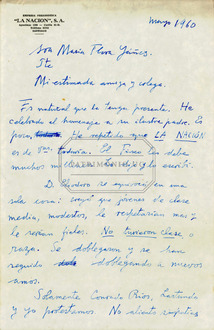 EMPRESA PERIODISTICA
"LA NACION", S.A.
SANTIAGO
marzo 1960
Sra María Flora Yáñez
Pte
Mi estimada amiga y colega.
Es natural que la tenga presente. He
celebrado el homenaje a su ilustre padre. Es
poco, He repetido que LA NACIÓN
es de Ud. todavía. El País le debe
muchos
D. Eliodoro se equivocó en una
sola cosa: creyó que jóvenes de clase
media, modestos, le respetarían más y
le serían fieles. No tuvieron clase o
raza. Se doblegaron y se han
seguido doblegando a nuevos
amos.
Solamente Conrado Ríos,
y yo protestamos. No